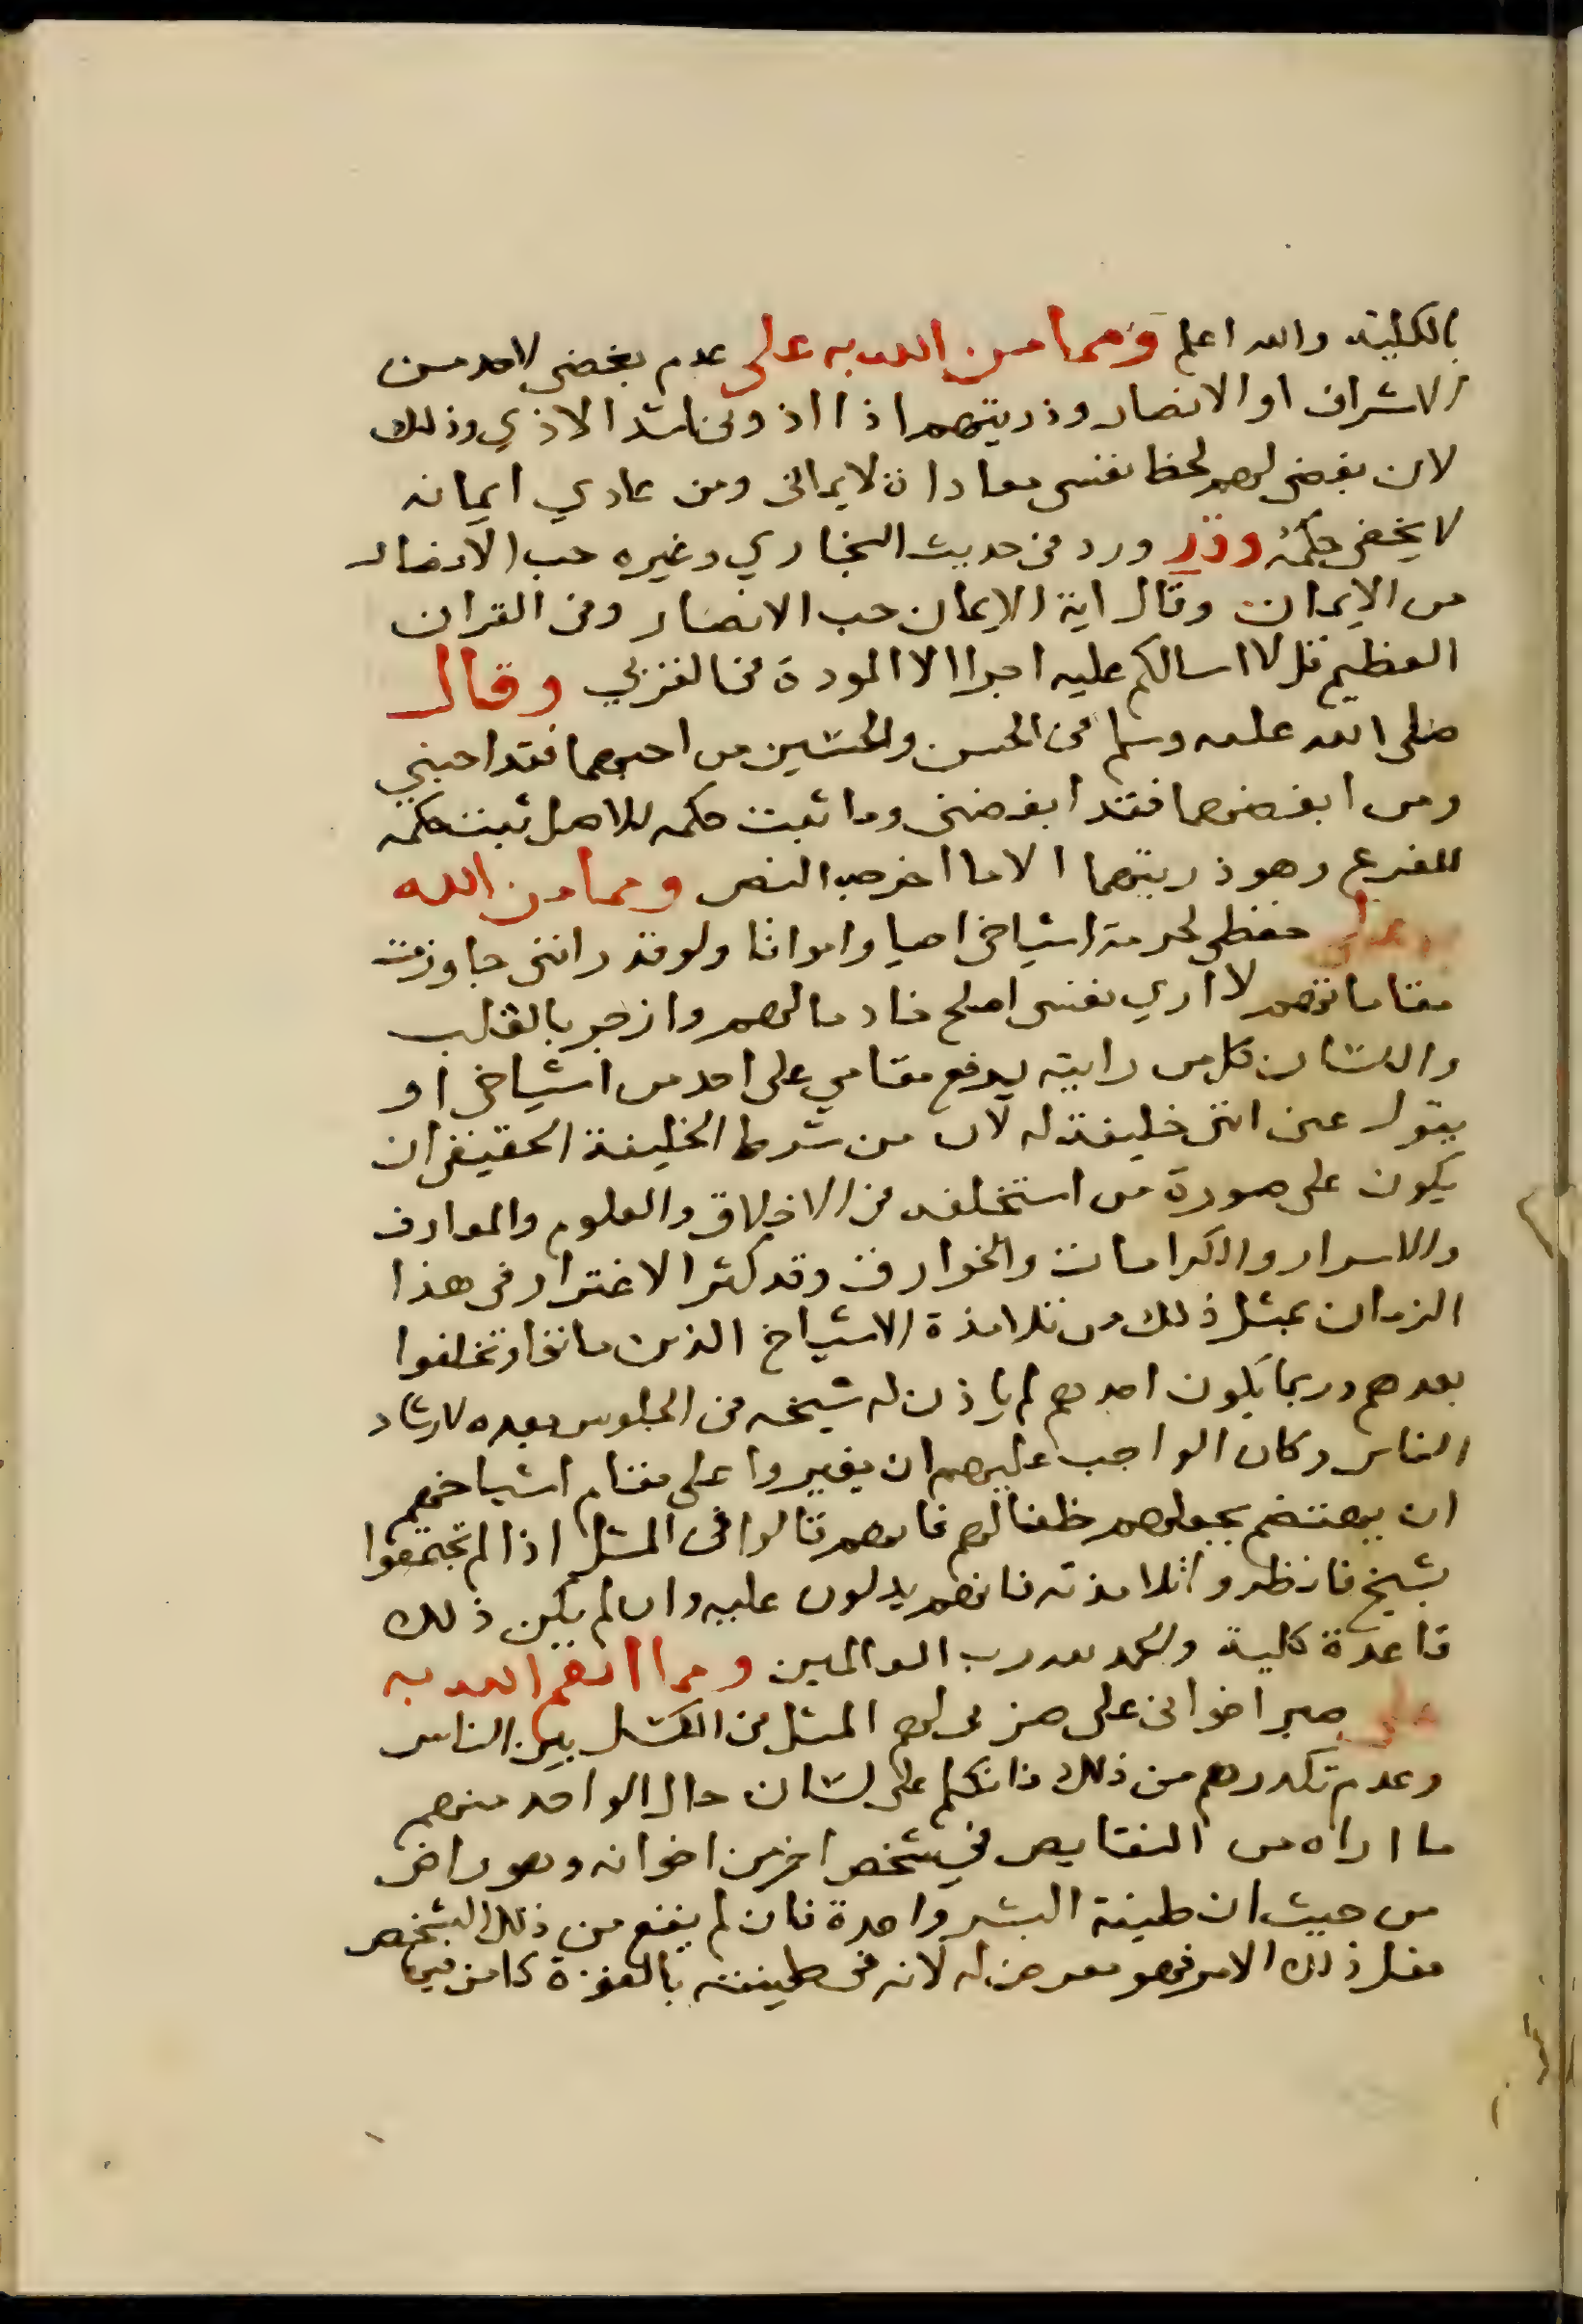 بالكلية والله اعلم ومما من الله به على عدم بغضى لاحد من
الاشراف او الانصار وذريتهم اذا اذونى اشد الاذي وذلك
لان بغضى لهم لحظ نفسى معاداة لايمانى ومن عادي ايمانه
لا يخفى حكمه وقد ورد فى حديث البخاري وغيره حب الانصار
من الايمان وقال اية الايمان حب الانصار وفى القران
العظيم قل لا اسالكم عليه اجرا الا المودة فى القربي وقال
صلى الله عليه وسلم فى الحسن والحسين من احبهما فقد احبني
ومن ابغضهما فقد ابغضنى وما ثبت حكمه للاصل ثبت حكمه
للفرع وهو ذريتهما الا ما اخرجه النص ومما من الله
به على حفظى لحرمة اشياخى احيا وامواتا ولو قدر اننى جاوزت
مقاماتهم لا اري نفسى اصلح خادما لهم وازجر بالقلب
واللسان كل من رايته يرفع مقامي على احد من اشياخى او
يقول عنى اننى خليفة له لان من شرط الخليفة الحقيقى ان
يكون على صورة من استخلفه فى الاخلاق والعلوم والمعارف
والاسرار والكرامات والخوارق وقد كثر الاغترار فى هذا
الزمان بمثل ذلك من تلامذة الاشياخ الذين ماتوا وتخلفوا
بعدهم وربما يكون احدهم لم ياذن له شيخه فى الجلوس بعده لارشاد
الناس وكان الواجب عليهم ان يغيروا على مقام اشياخهم
ان يهتضم بجعلهم خلفا لهم فانهم قالوا فى المثل اذا لم تجتمعوا
بشيخ فانظروا تلامذته فانهم يدلون عليه وان لم يكن ذلك
قاعدة كلية والحمد لله رب العالمين ومما انعم الله به
على صبر اخوانى على ضربى لهم المثل فى الكسل بين الناس
وعدم تكدرهم من ذلك فاتكلم على لسان حال الواحد منهم
ما اراه من النقايص في شخص اخر من اخوانه وهو راض
من حيث ان طينة البشر واحدة فان لم يقع من ذلك الشخص
مثل ذلك الامر فهو معرض له لانه فى طينته بالقوة كامن فيها